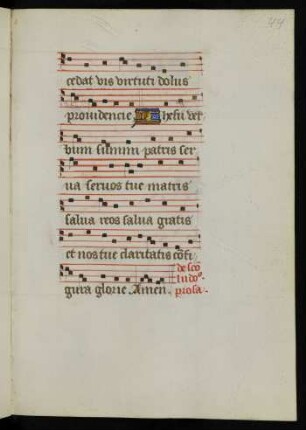 cedat vis virtuti dolus
prouidencie Ihesu ver
bum summi patris ser
ua seruos tue matris
salua reos salua gratis
et nos tue claritatis cōfi
gura glorie Amen.
de scō
ludoº
prosa.